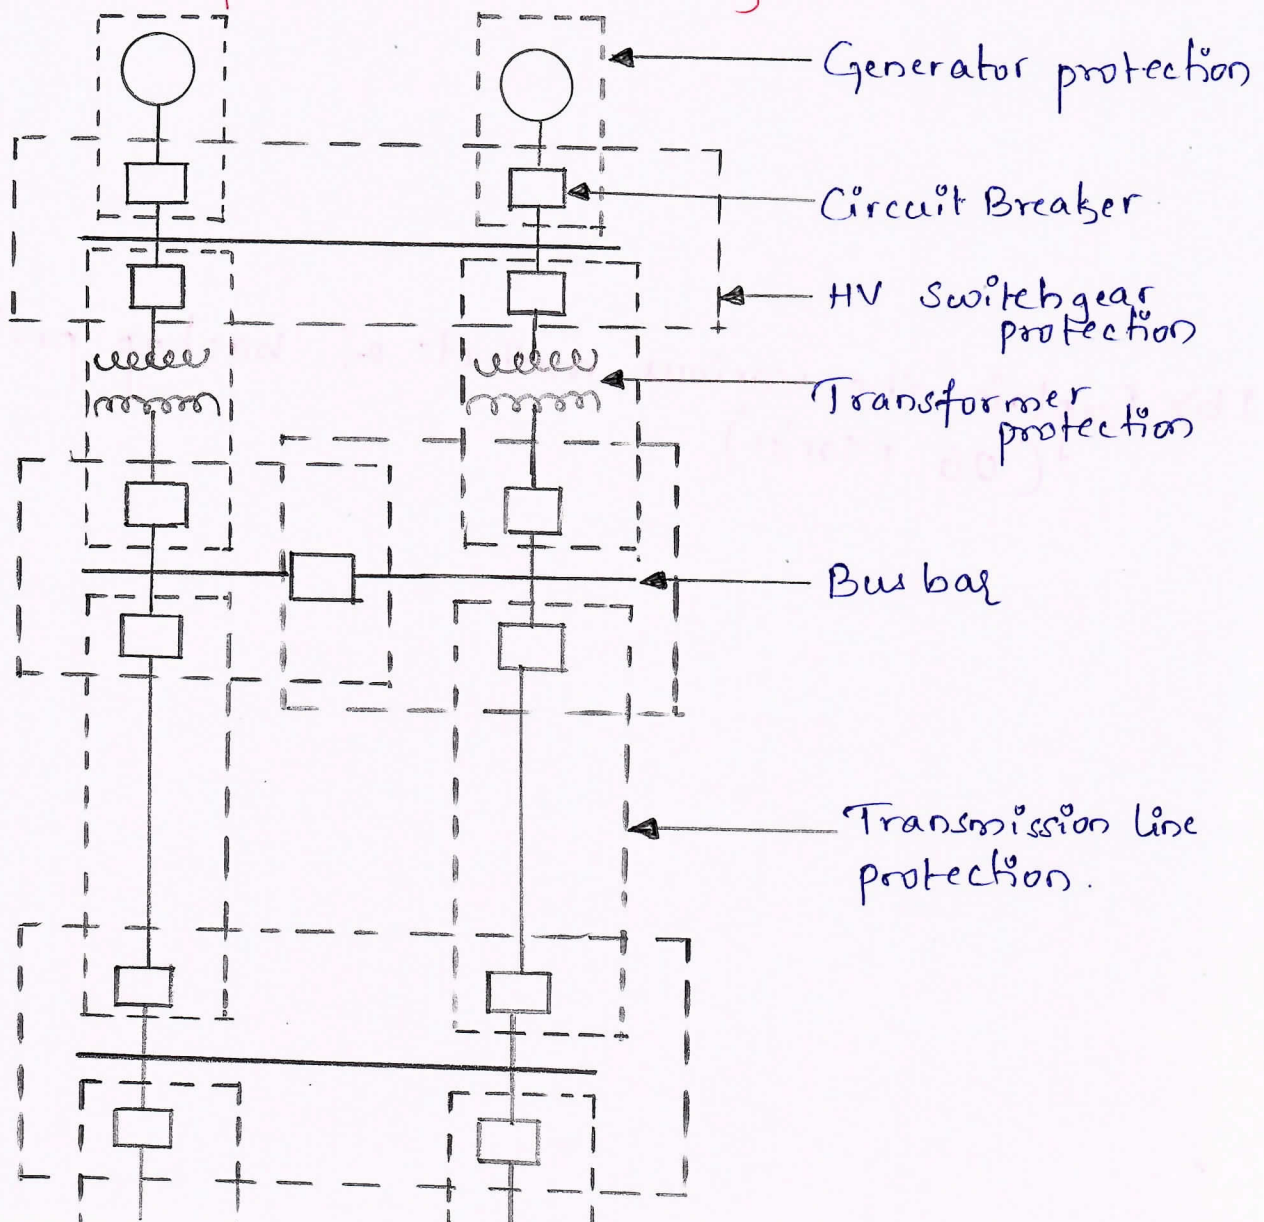 Generator protection
Circuit Breaker
HV Switchgear
protection
Transformer
protection
Bus bar
Transmission line
protection.